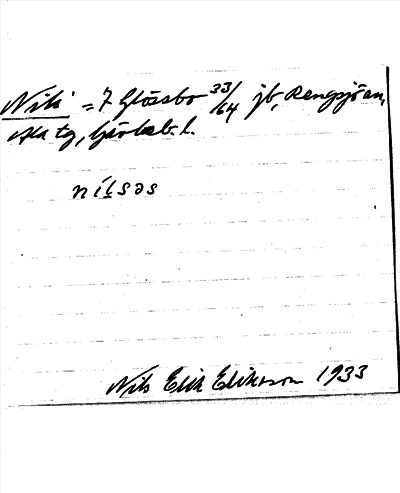 Nils = 7 Glössbo 33/64 jb, Rengsjö sn,
Ala tg, Gävleb. l.
nílsəs
Nils Erik Eriksson 1933